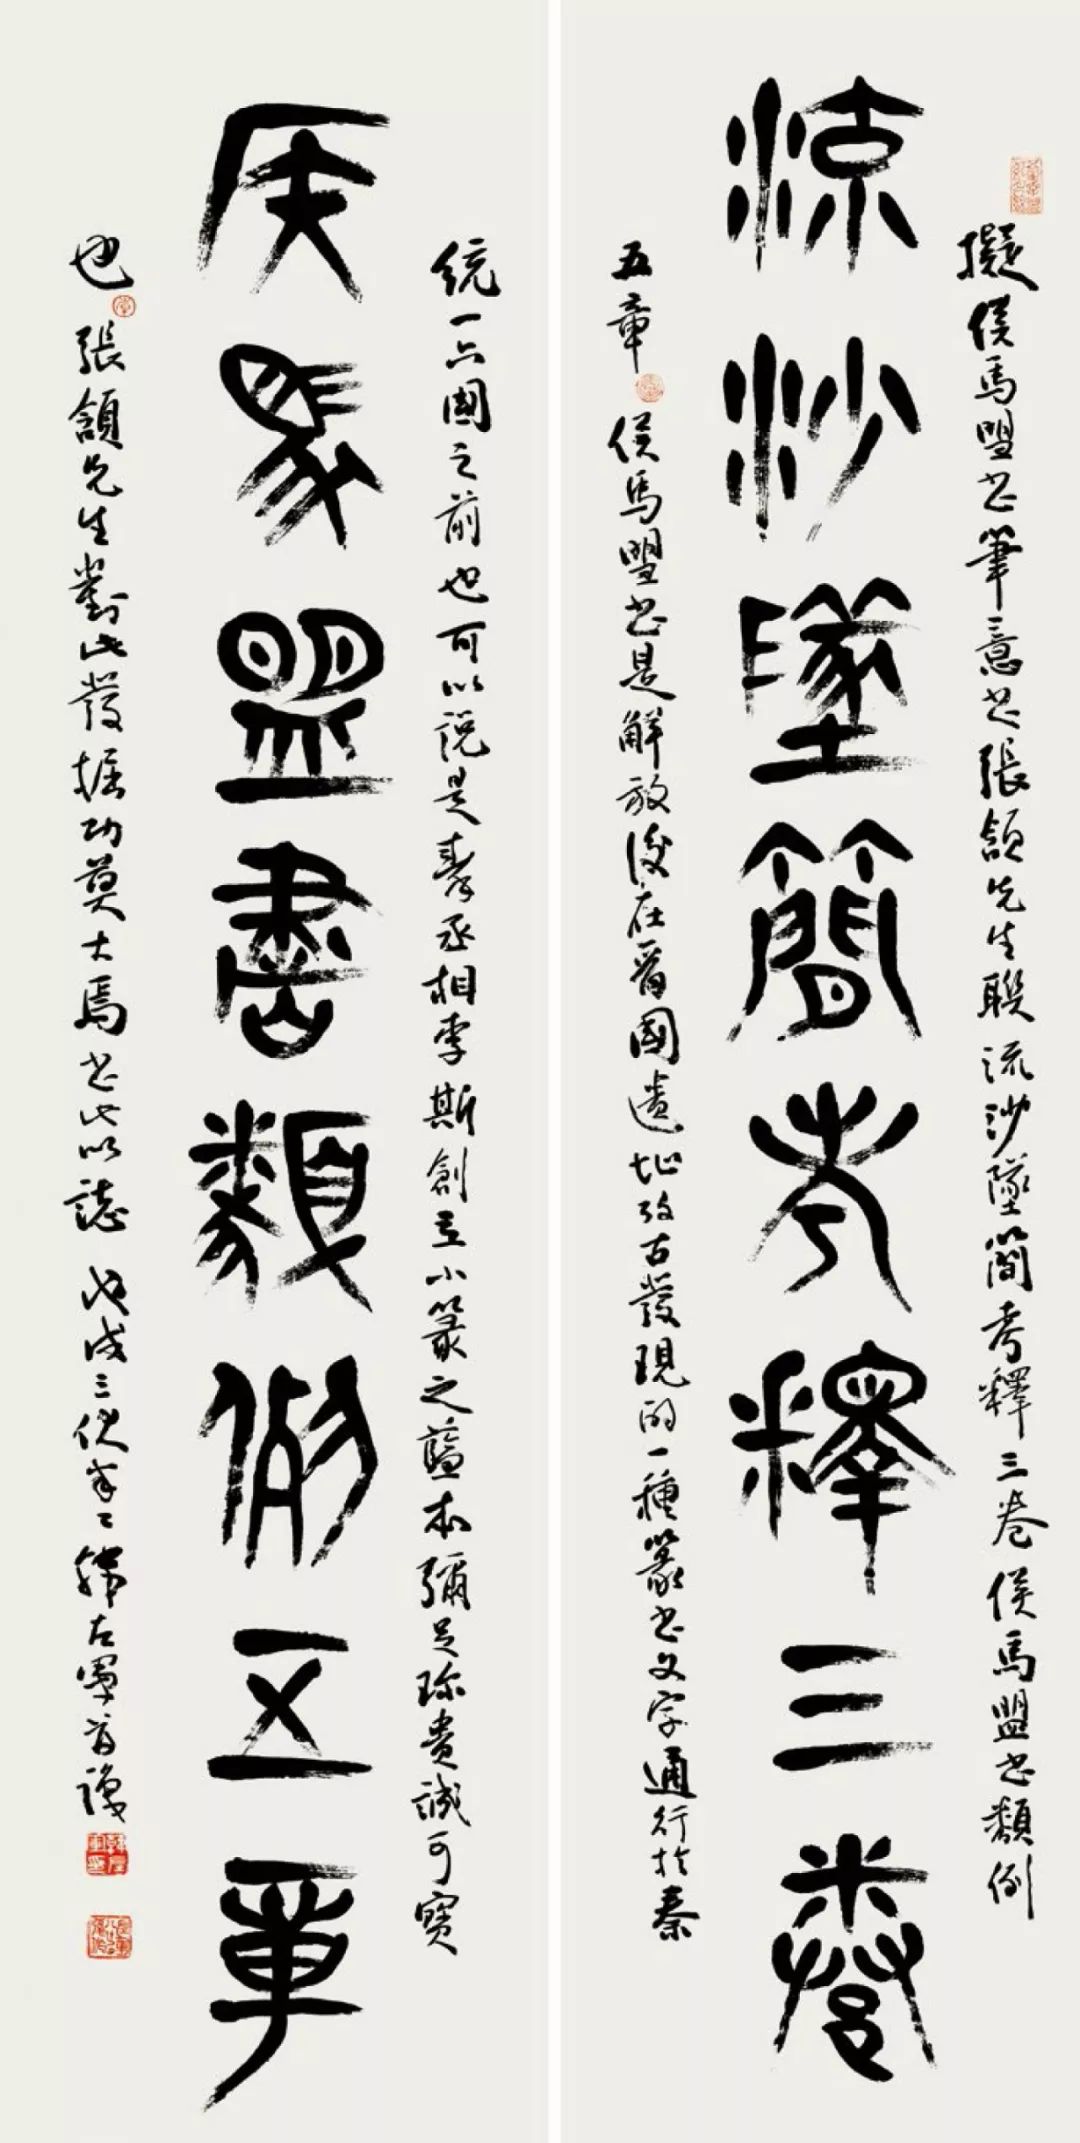 擬侯馬盟书筆意书張頷先生聯流沙墜簡考釋三卷侯馬盟书類例
流沙墜簡考釋三卷
五章 侯馬盟书是解放後在晉國遺址攷古發現的一種篆书文字通行於秦
統一六國之前也可以説是秦丞相李斯創立小篆之藍本彌足珍貴誠可寶
侯馬盟書類例五章
也 張頷先生對此發掘功莫大焉书此以誌 戊戌三伏 韓左軍